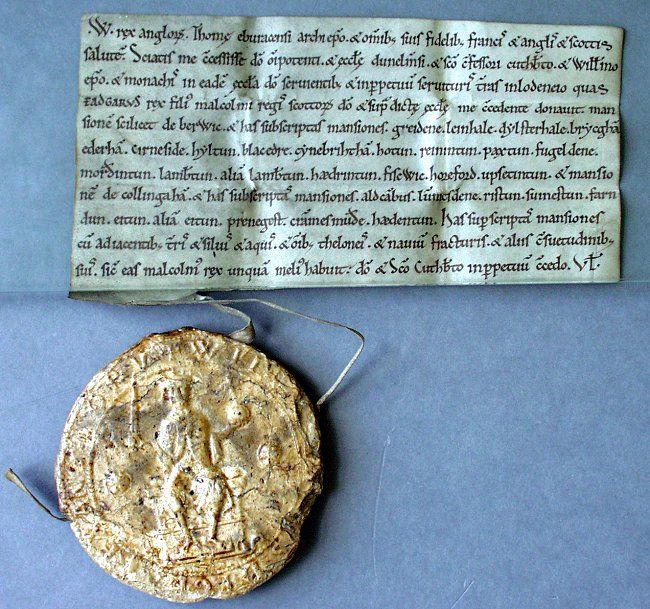 .W. rex anglorꝫ. Thomę eburacensi archiepo. & omibꝫ suis fidelibꝫ. francis & anglis & scottis
salutē. Sciatis me c̄cessisse dō om̄ipotenti. & ęccłę dunelmsi. & scō c̄fessori cuthbto & Willmo
ep̄o. & monachis in eadē ęccła dō seruientibꝫ & inppetuū seruituris tras inlodeneio quas
ÆADGARUS rex filius malcolmi regis scottorꝫ dō & sup̄ dictę ęccłę me c̄cedente donauit. man
sionē scilicet de berwic. & has subscriptas mansiones. greidene. leinhale. dylsterhale. brycghā
ederhā. cirneside. hyltun. blacedre. cynebrihthā. hotun. reinintun. paxtun. fugeldene.
mordintun. lambtun. aliā lambtun. hædrintun. fisewic. horeford. upsetintun. & mansio
nē de collingahā. & has subscriptas mansiones. aldcābus. lummesdene. ristun. suinestun. farn
dun. eitun. aliā eitun. prenegest. crāmesmuðe. hædentun. Has sup̄scriptas mansiones
cū adiacentibꝫ. tris & siluis & aquis. & omibꝫ theloneis. & nauiū fracturis. & aliis c̄suetudinibꝫ.
suis. sic eas malcolmus rex unquā melius habuit: dō & Scō Cuthbto inppetuū c̄cedo. Vł.
WIL